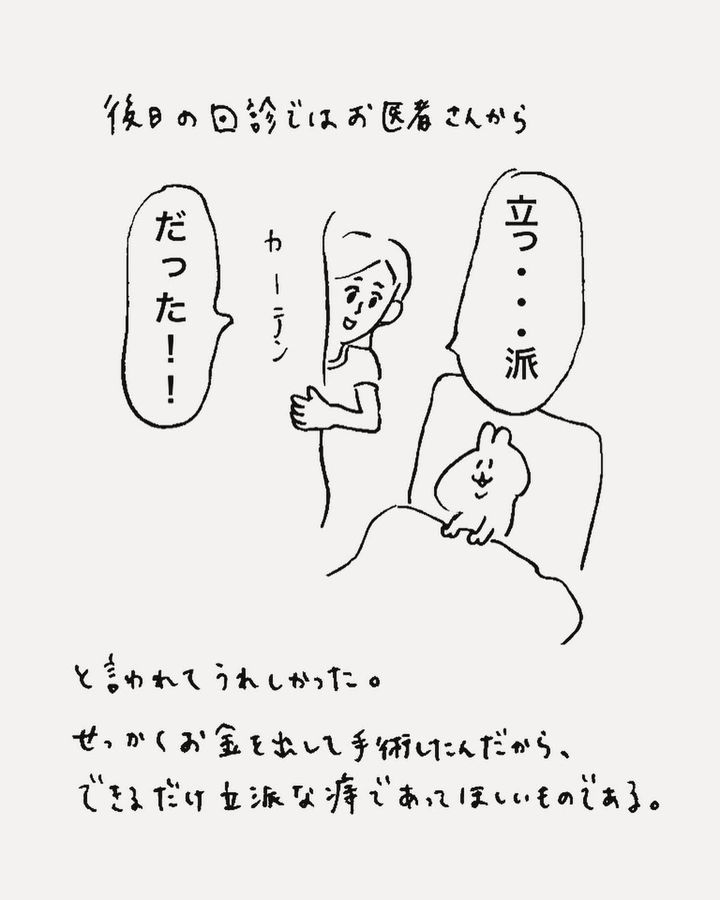 後日の回診ではお医者さんから
立っ・・・派
だった！！
カーテン
と言われてうれしかった。
せっかくお金を出して手術したんだから、
できるだけ立派な痔であってほしいものである。